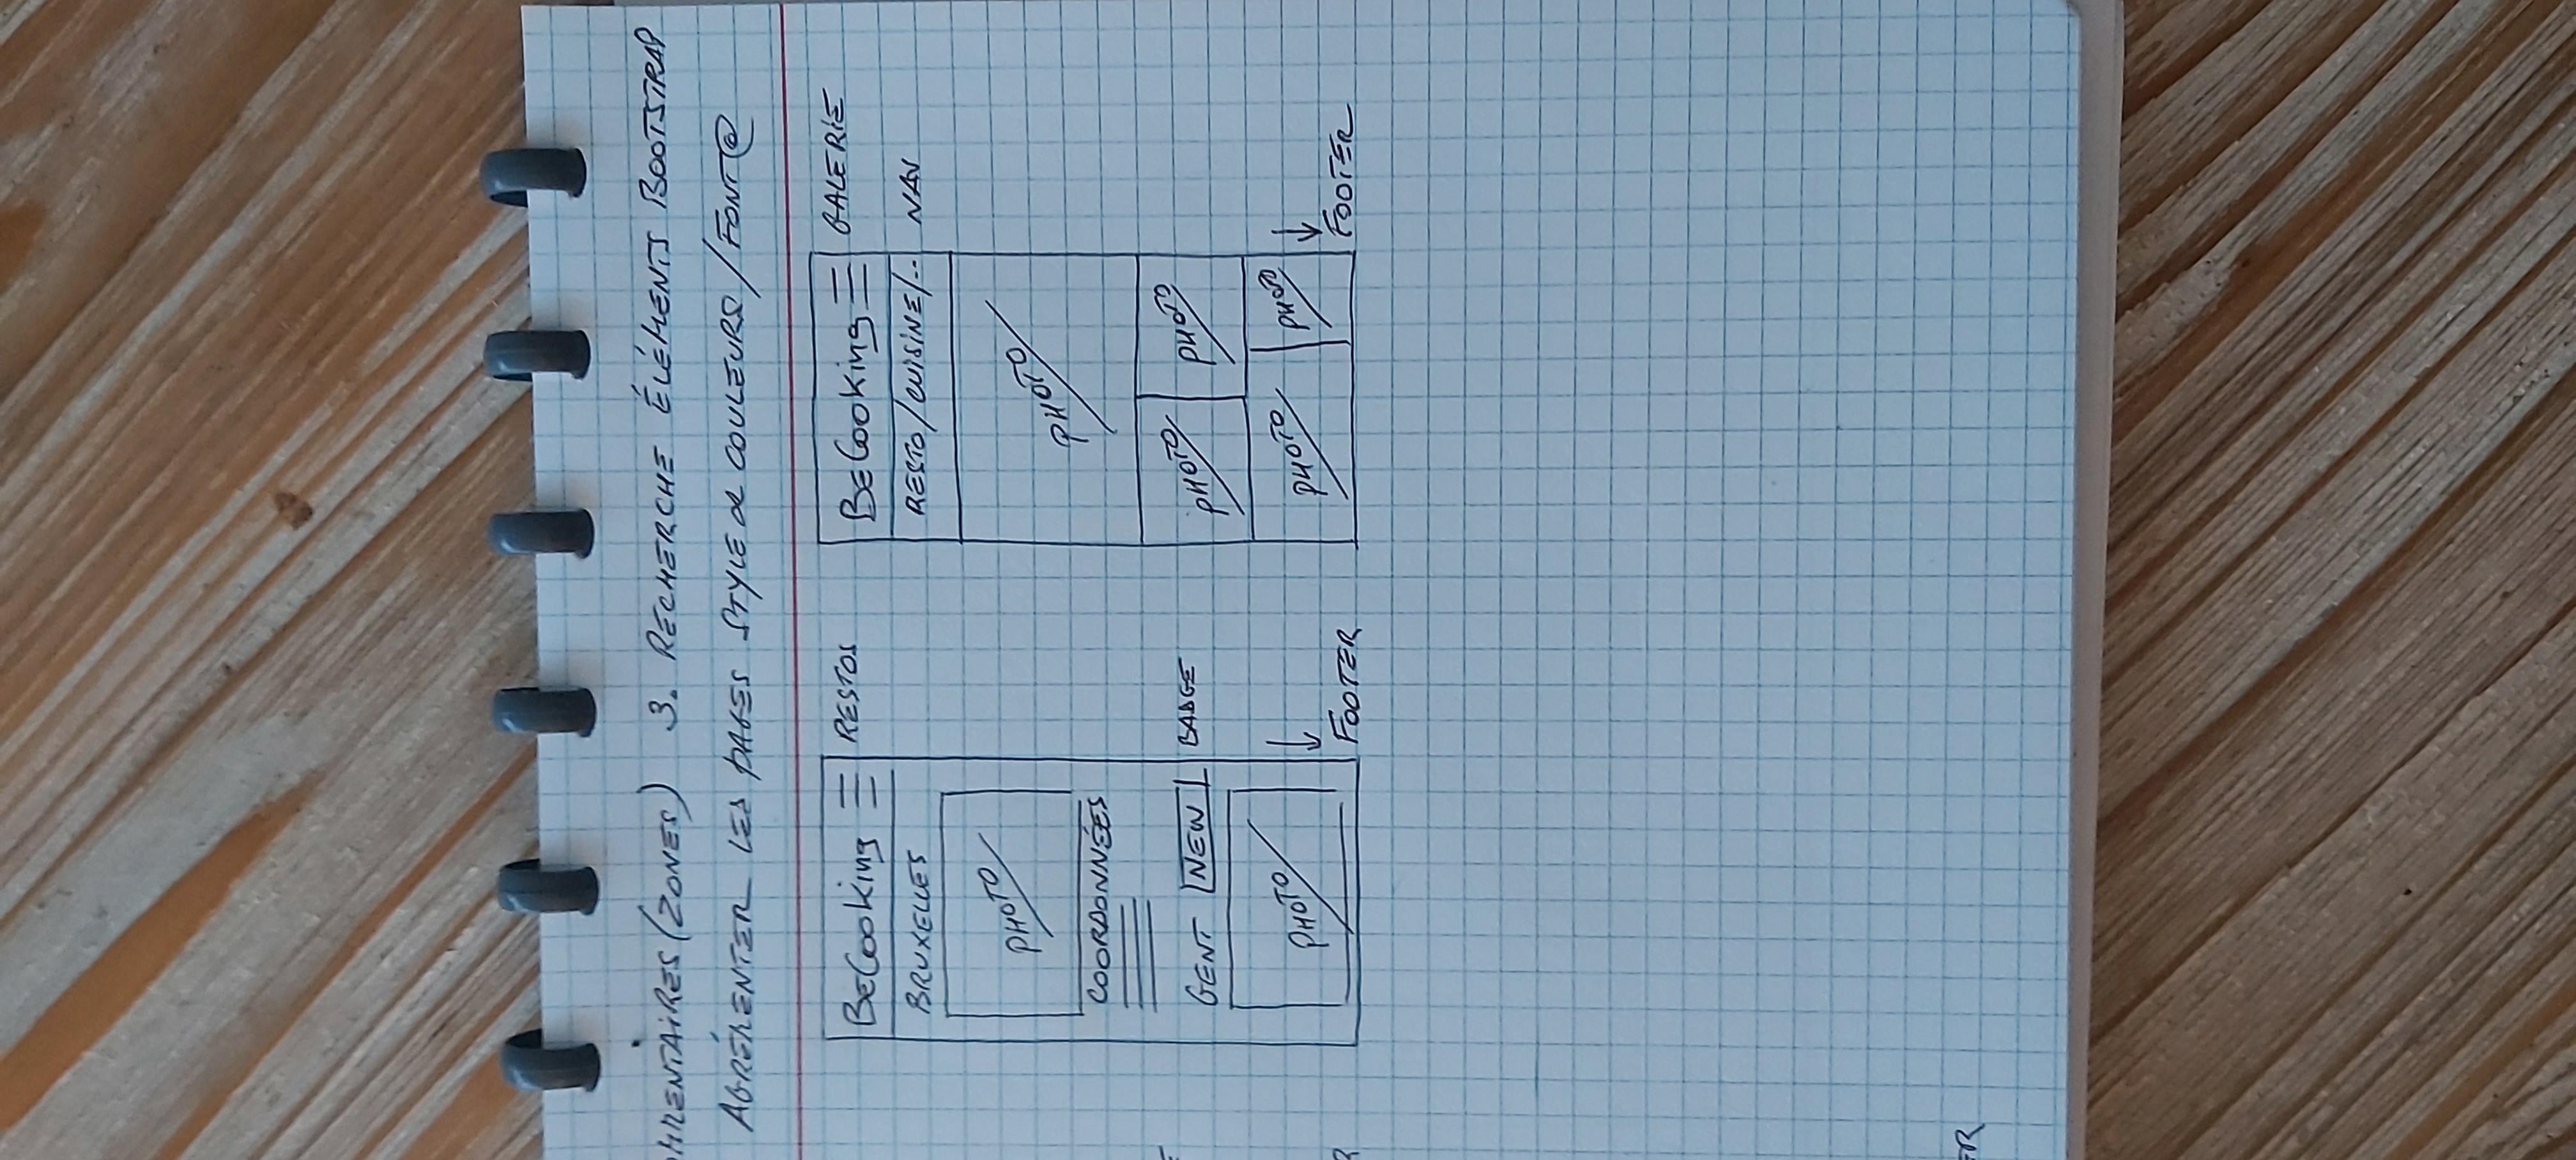 (ZONES) 3. RECHERCHE ÉLÉMENTS BOOTSTRAP
AGRÉMENTER LES PAGES STYLE & COULEURS / FONT@
BeCooking RESTOS
BRUXELLES
PHOTO
COORDONNÉES
GENT NEW BADGE
PHOTO
FOOTER
BeCooking GALERIE
RESTO/CUISINE/.. NAV
PHOTO
PHOTO PHOTO
PHOTO PHOTO
FOOTER